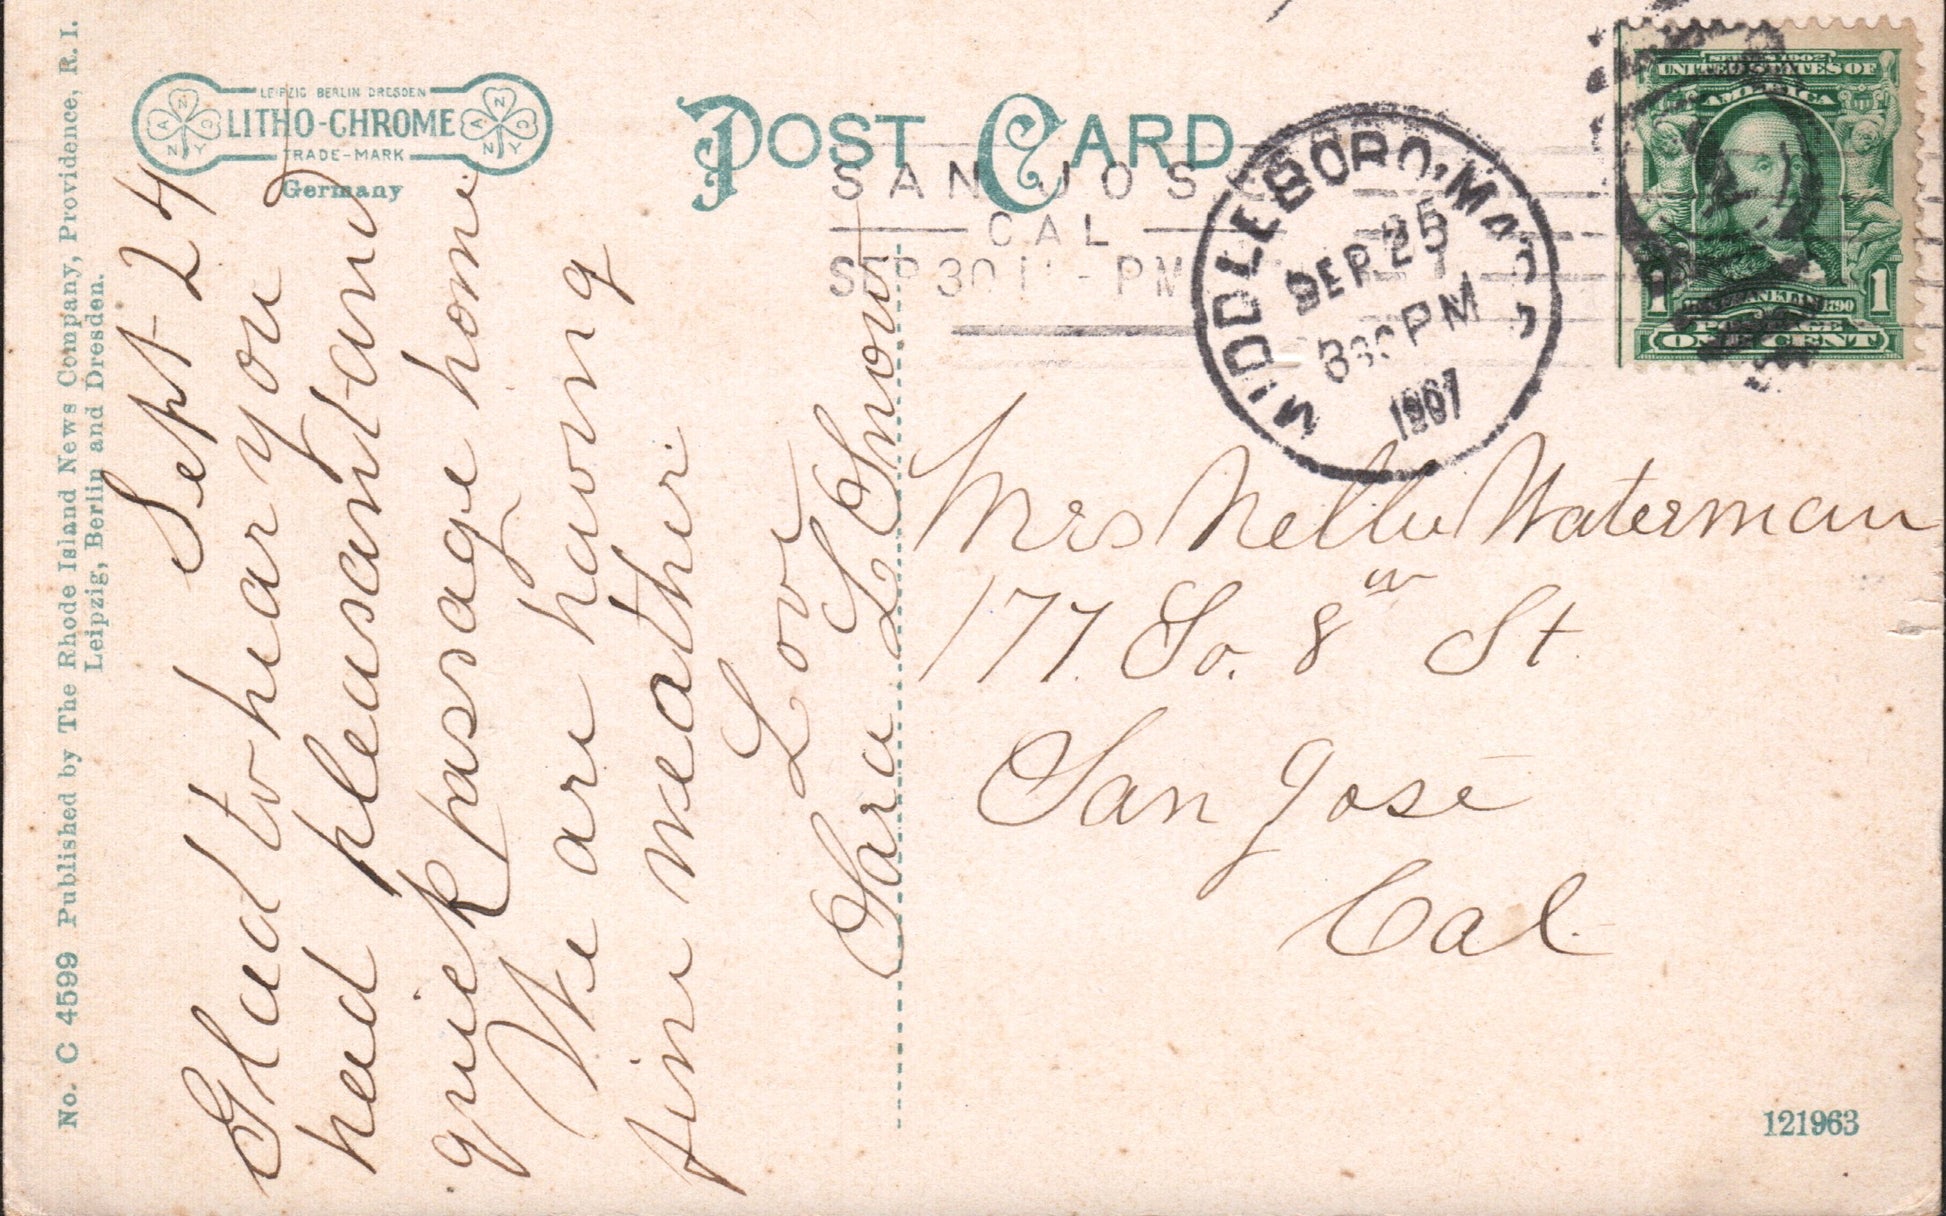 No. C 4599 Published by The Rhode Island News Company, Providence, R. I.
Leipzig, Berlin and Dresden.
LEIPZIG BERLIN DRESDEN
LITHO-CHROME
TRADE-MARK
Germany
POST CARD
SAN JOSE
CAL
SEP 30 - PM
MIDDLEBORO, MASS
SEP 25
3 30 PM
1907
SERIES 1902
UNITED STATES OF
AMERICA
1 FRANKLIN 1790 1
POSTAGE
ONE CENT
Sept 24
Glad to hear you
had pleasant and
quick passage home
We are having
fine weather.
Love
Sara L Snow
Mrs Nellie Waterman
177 So. 8th St
San José
Cal.
121963